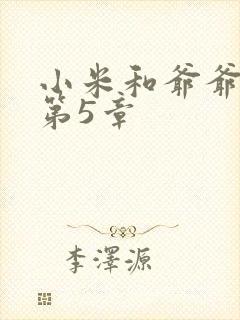 小米和爷爷
第5章
李澤源